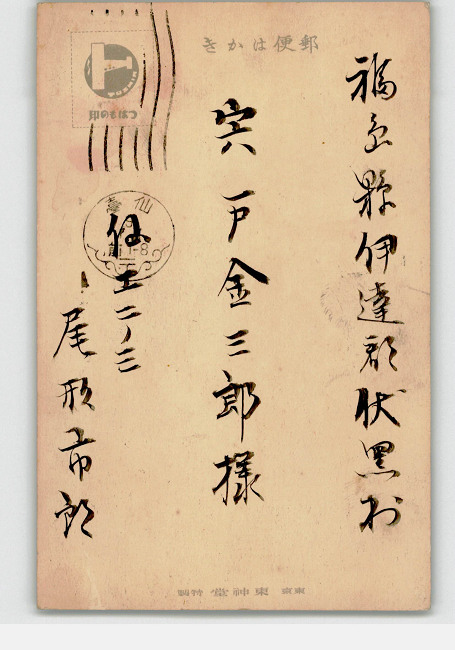 郵便はかき
福島縣伊達郡伏黒村
宍戸金三郎様
仙台
仙工二ノ三
尾形市郎
つはもの印
東京 東神堂 特製